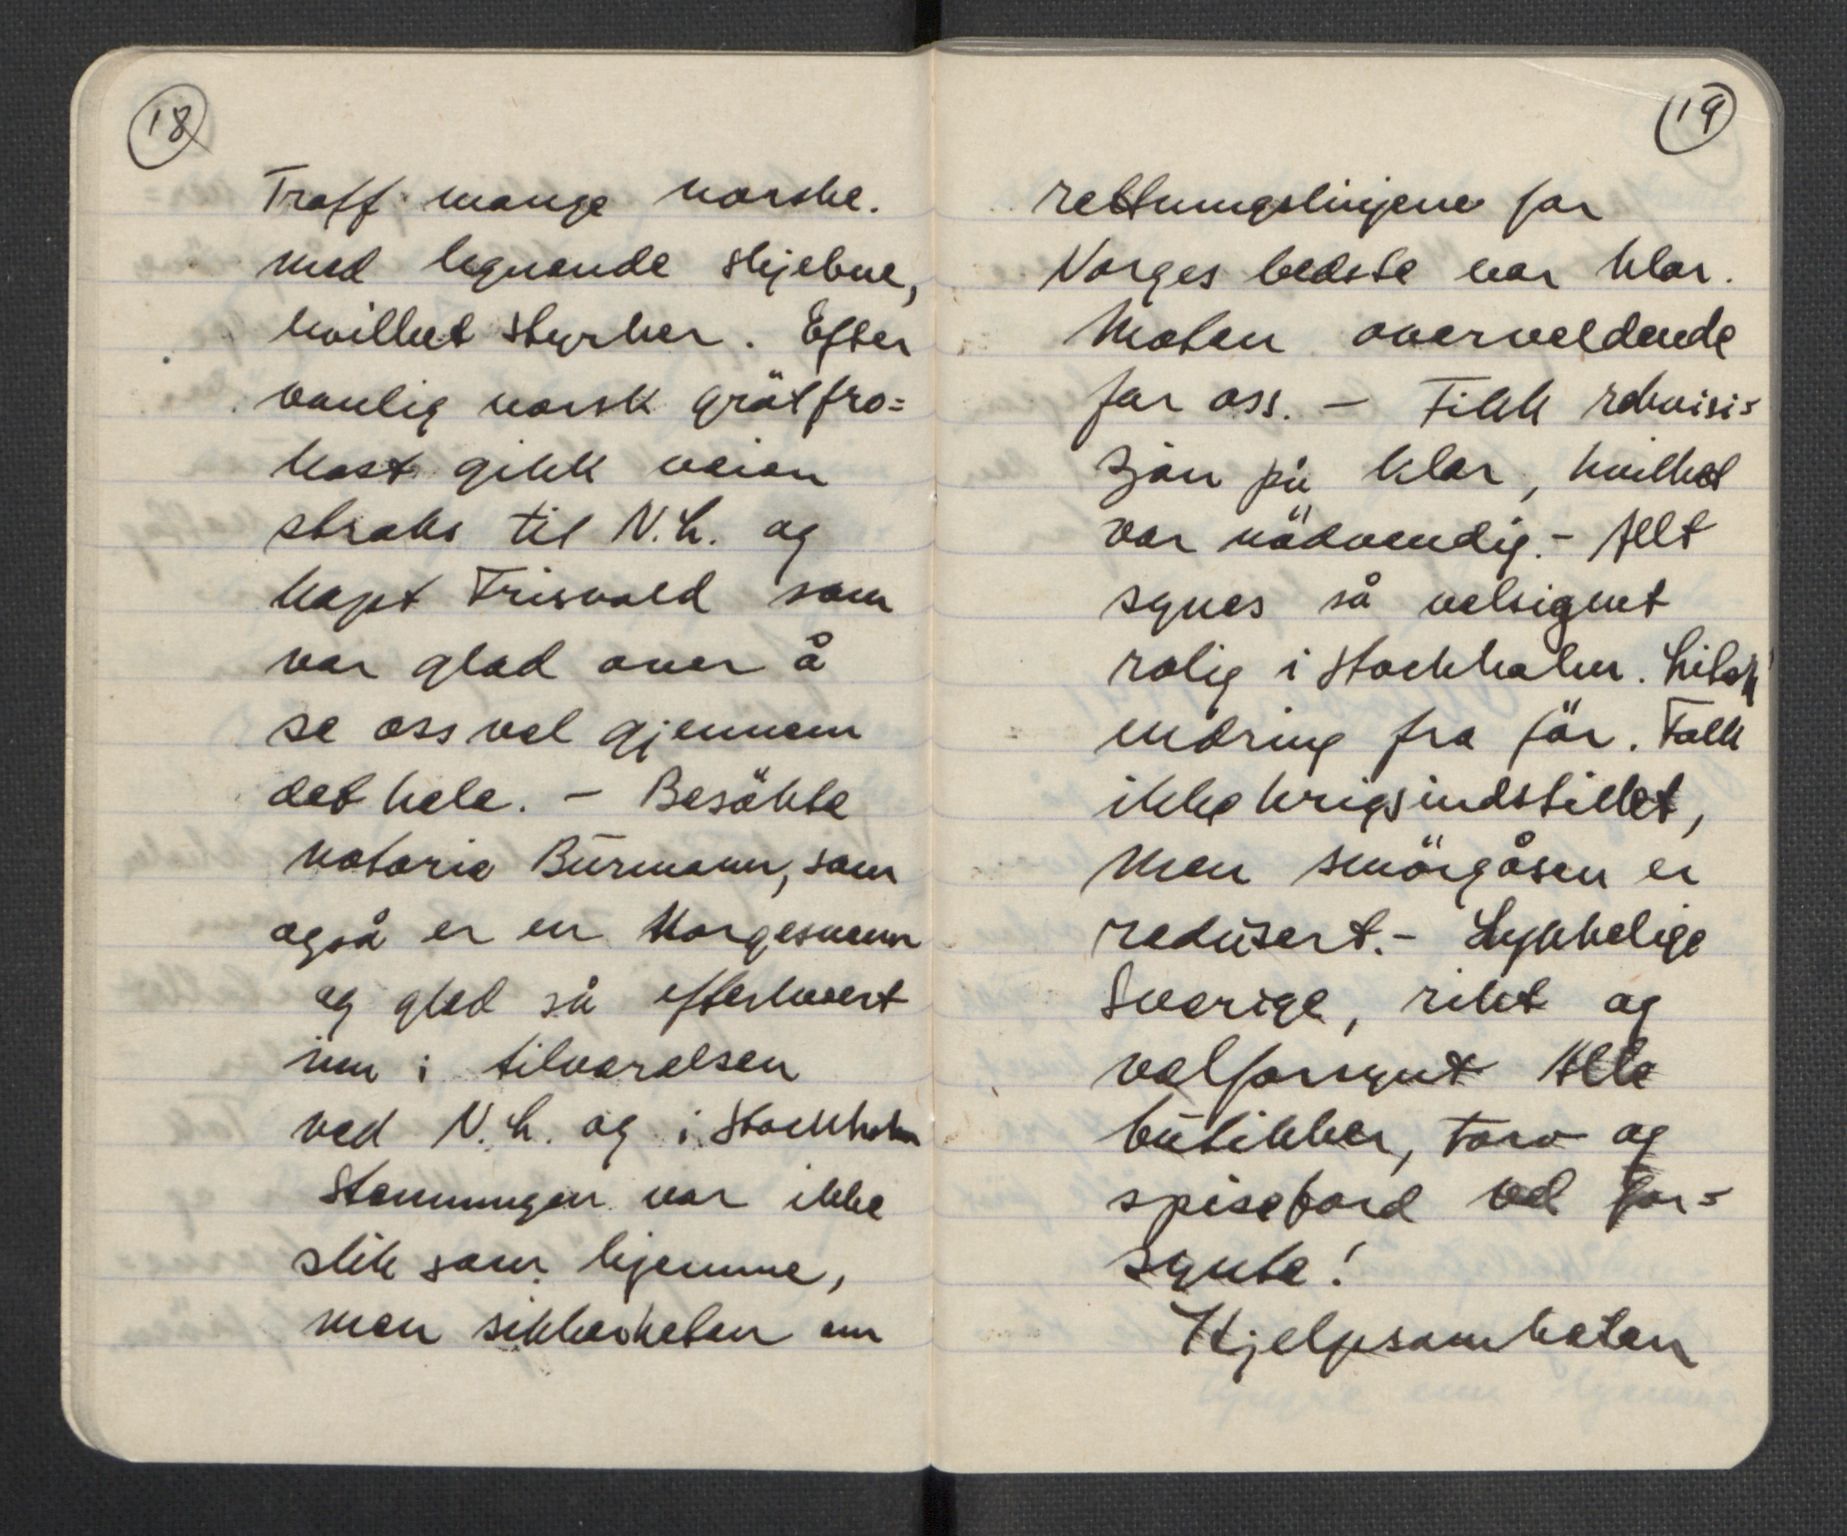 18
Traff mange norske.
med lignende skjebne,
hvilket styrker. Efter
vanlig norsk grötfro=
kost gikk veien
straks til N.L. og
kapt Friswold som
var glad over å
se oss vel gjennem
det hele. – Besökte
notarie Būrmann, som
også er en Norgesvenn
og gled så efterhvert
inn i tilværelsen
ved N.L. og i Stockholm
Stemningen var ikke
slik som hjemme,
men sikkerheten om
19
rettningslinjene for
Norges bedste var klar.
Maten overveldende
for oss. – Fikk rekvisi=
sjon på klær, hvilket
var nödvendig. – Allt
synes så velsignet
rolig i Stockholm. Liten
endring fra för. Folk
ikke krigsindstillet,
men smörgåsen er
redūsert. – Lykkelige
Sverige, rikt og
velforsynt Alle
būtikker, torv og
spisebord vel for=
synte!
Hjelpsomheten